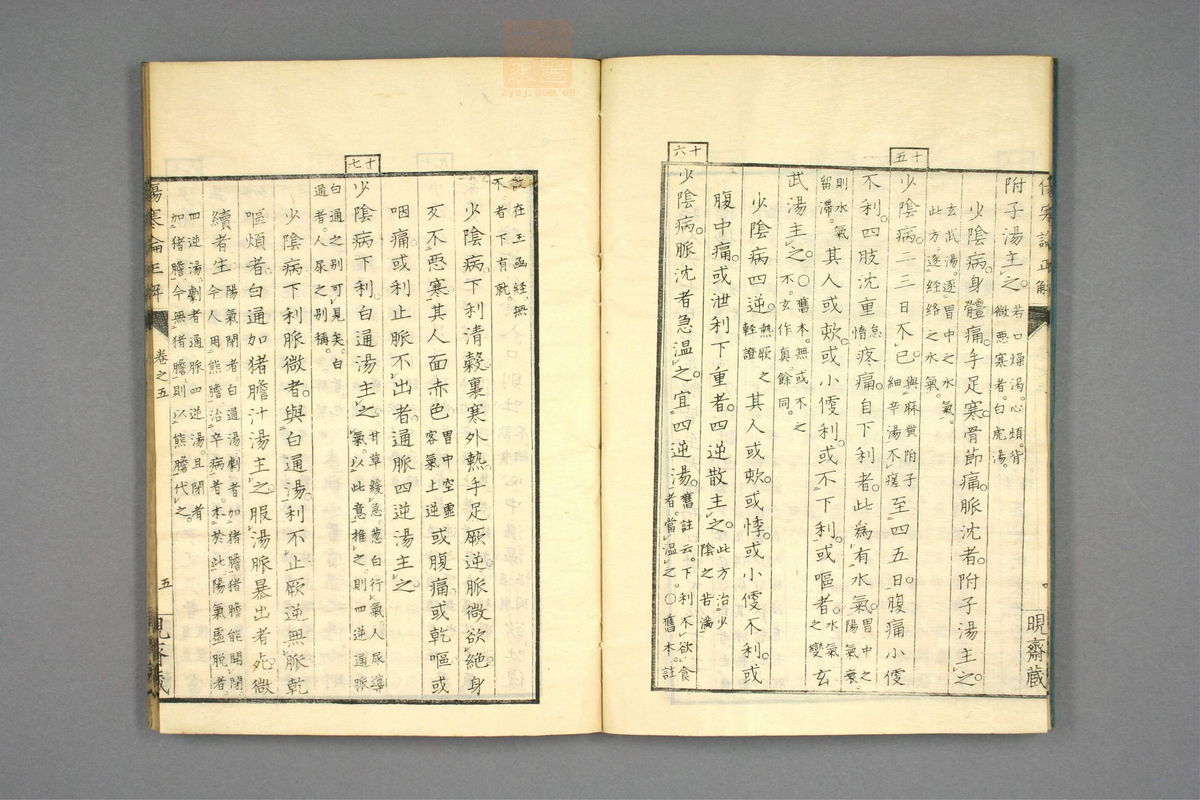 附子湯主之。若口燥渴。心煩。背微惡寒者。白虎湯。
少陰病。身體痛。手足寒。骨節痛。脈沈者。附子湯主之。
玄武湯。逐胃中之水氣。此方逐經絡之水氣。
十五
少陰病。二三日不已與麻黄附子細辛湯不瘥至四五日。腹痛小便
不利。四肢沈重惰怠疼痛。自下利者。此為有水氣。胃中之陽氣衰
則水氣留滞。其人或欬。或小便利。或不下利。或嘔者。水氣之變玄
武湯主之。○舊本。無或不之不。玄作真。餘同。
少陰病四逆。熱厥之輕證其人或欬。或悸。或小便不利。或
腹中痛。或泄利下重者。四逆散主之。此方治少陰之苦滿
十六
少陰病。脈沈者急温之。宜四逆湯。舊註云。下利不欲食者。當温之。○舊本。註
故在玉函經。無不者下有就。
少陰病。下利清穀。裏寒外熱。手足厥逆。脈微欲絶。身
反不惡寒。其人面赤色胃中空虛客氣上逆或腹痛。或乾嘔。或
咽痛。或利止脈不出者。通脈四逆湯主之。
十七
少陰病。下利。白通湯主之。甘草緩急。葱白行氣。人尿導氣。以此意推之。則四逆通脈
白通之别可見矣。白通者。人尿之别稱。
少陰病。下利脈微者。與白通湯。利不止。厥逆無脈。乾
嘔煩者。白通加猪膽汁湯主之。服湯脈暴出者死。微
續者生。陽氣閉者白通湯劇者加猪膽猪膽能開閉今人用熊膽治卒病者。本於此。陽氣虛脱者
四逆湯。劇者通脈四逆湯。且閉者加猪膽今無猪膽。則以熊膽代之。
傷寒論正解
卷之五
五
晛齋蔵
zyoj.com.cn